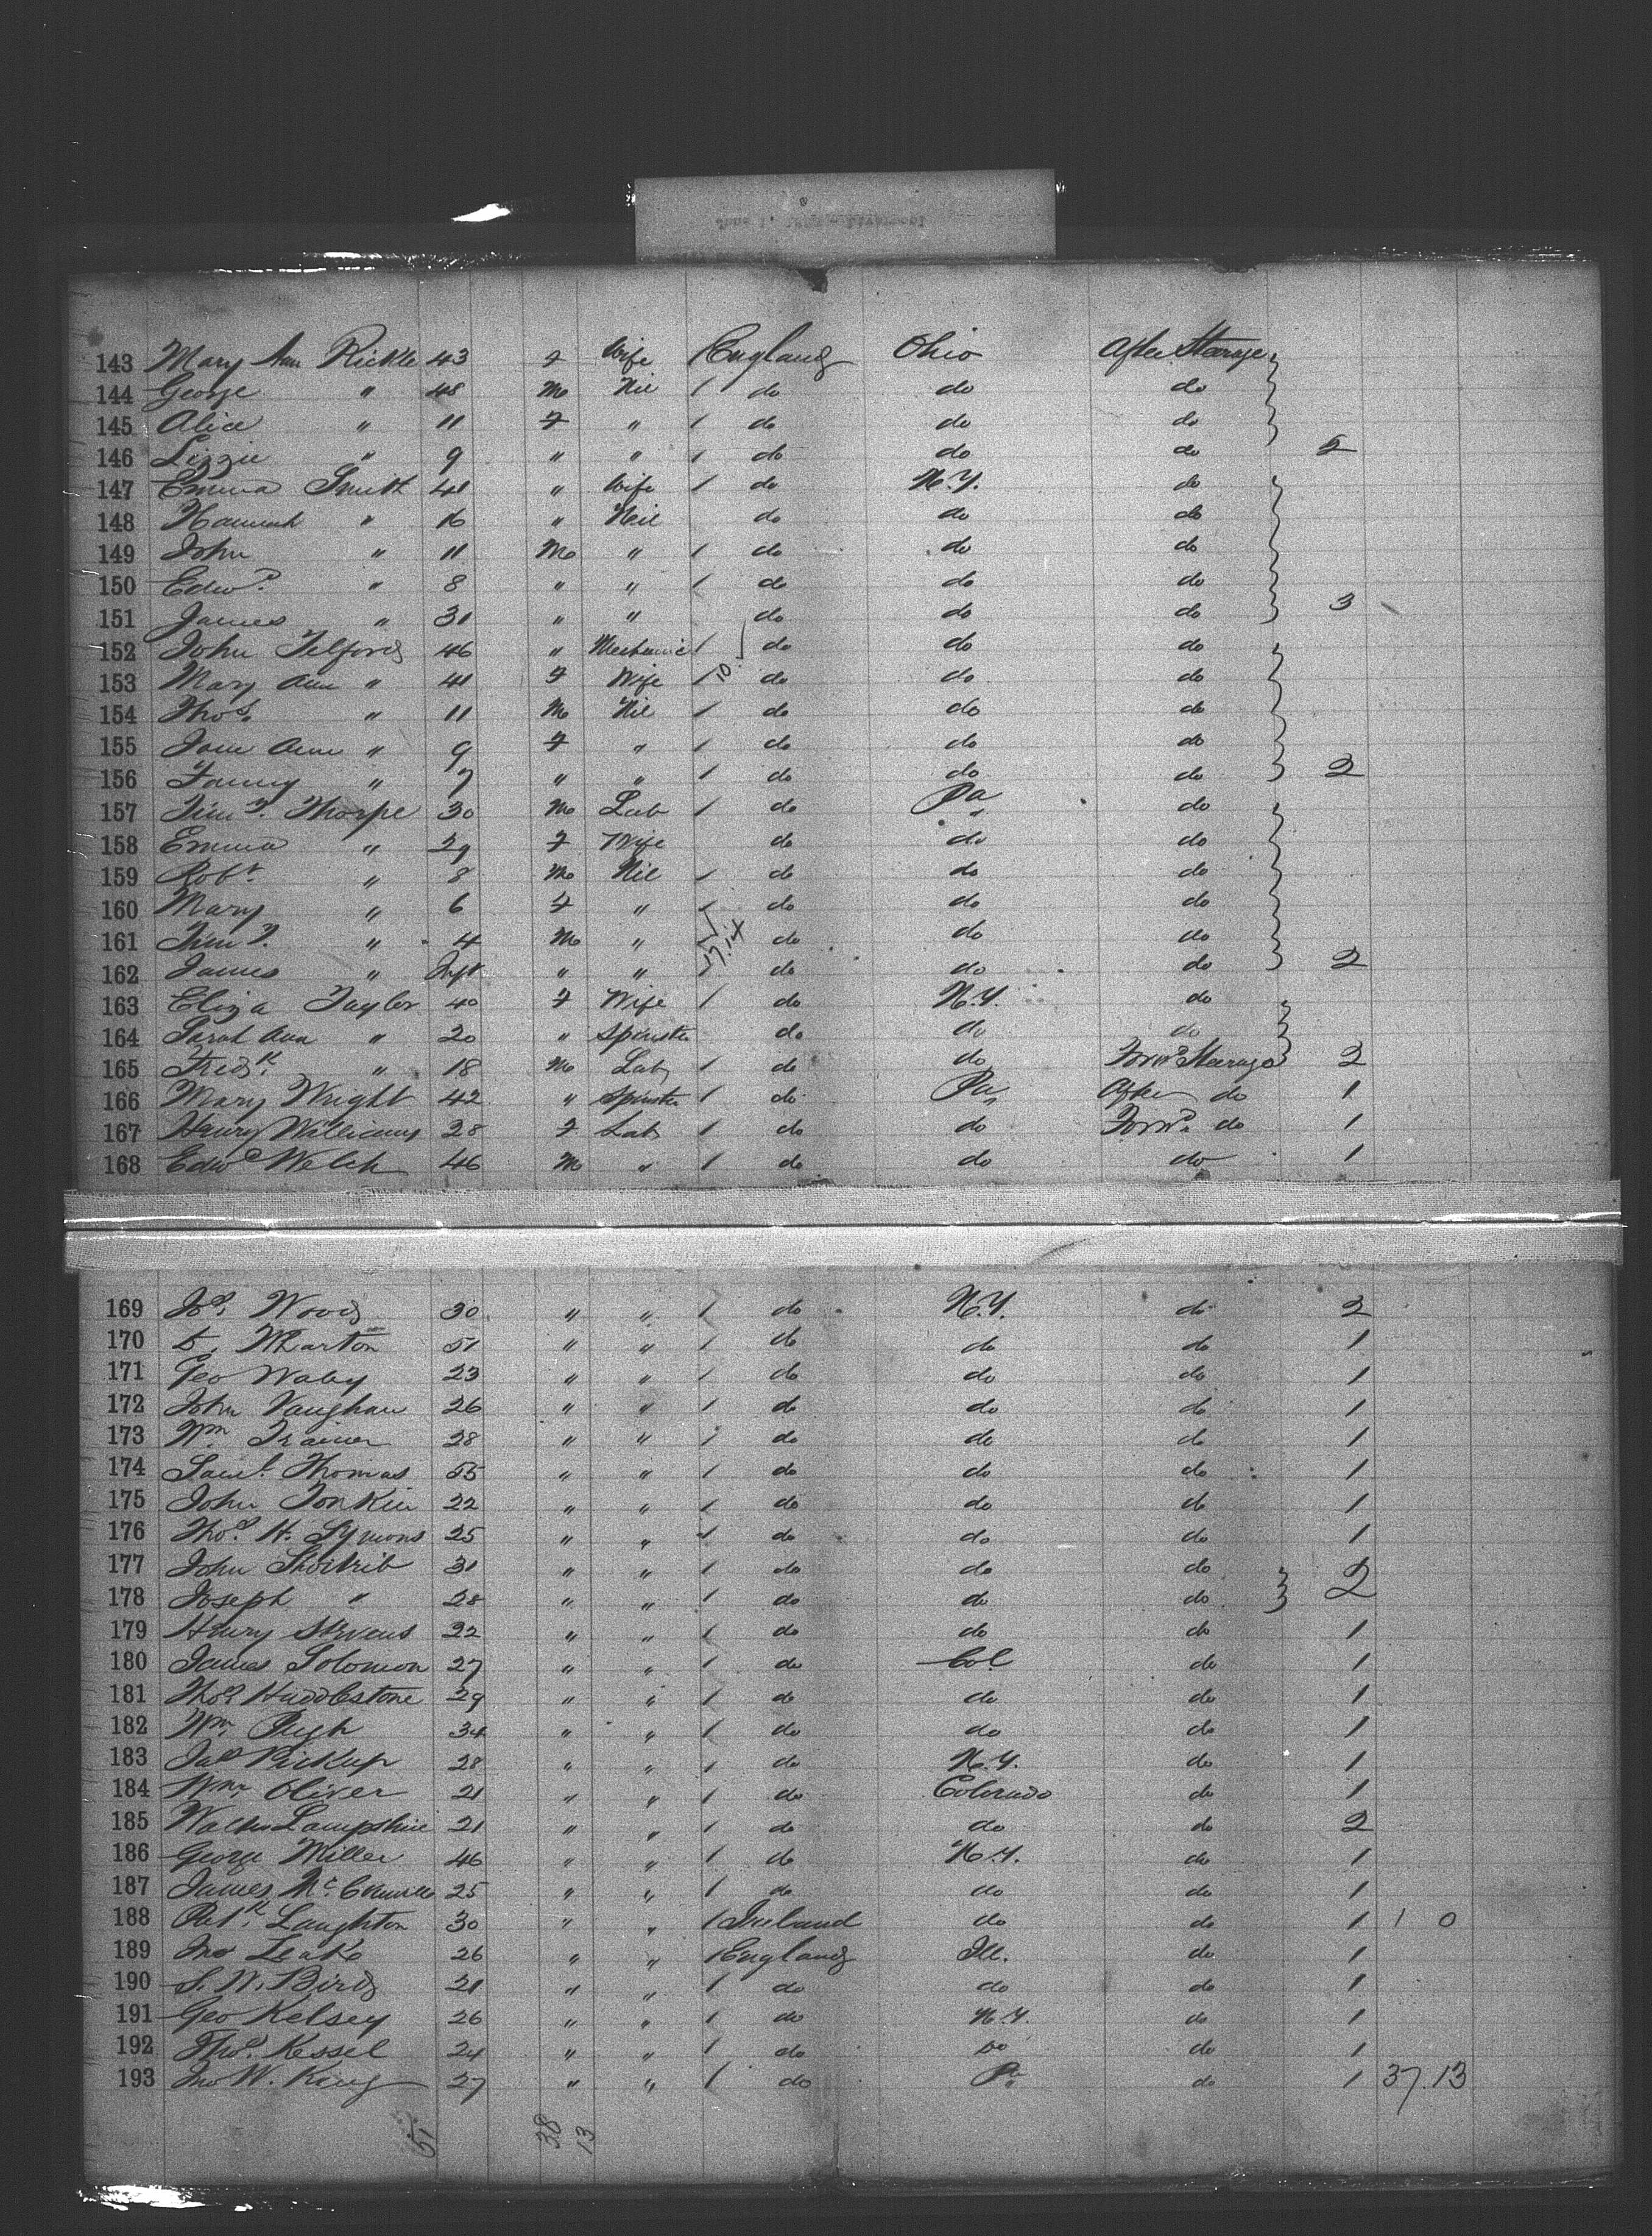 143 Mary Ann Rickle 43 F Wife 1 England Ohio After Steerage
144 George " 48 M Nil 1 do do do
145 Alice " 11 F " 1 do do do
146 Lizzie " 9 " " 1 do do do 2
147 Emma Smith 41 " Wife 1 do N.Y. do
148 Hannah " 16 " Nil do do do
149 John " 11 M " 1 do do do
150 Edwd. " 8 " " 1 do do do
151 James " 31 " " do do do 3
152 John Telford 46 " Mechanic 1 do do do
153 Mary Ann " 41 F Wife 1 10 do do do
154 Thos. " 11 M Nil 1 do do do
155 Jane Ann " 9 F " 1 do do do
156 Fanny " 7 " " 1 do do do 2
157 Thorpe 30 M Lab 1 do Pa do
158 Emma " 29 F Wife do do do
159 Robt. " 8 M Nil 1 do do do
160 Mary " 6 F " 1 do do do
161 " 4 M " 17.14 do do do
162 James " Inft " " 1 do do do 2
163 Eliza Taylor 40 F Wife 1 do N.Y. do
164 Sarah Ann " 20 " Spinster do do do
165 Fredk. " 18 M Lab 1 do do Forwd Steerage 2
166 Mary Wright 42 " Spinster 1 do Pa, After do 1
167 Henry Williams 28 F Lab 1 do do Forwd. do 1
168 Edwd Welch 46 M " 1 do do do 1
169 Jos. Wood 30 " " 1 do N.Y. do 2
170 Wharton 51 " " 1 do do do 1
171 Geo Waby 23 " " 1 do do do 1
172 John Vaughan 26 " " 1 do do do 1
173 Wm. Trainer 28 " " 1 do do do 1
174 Saml. Thomas 55 " " 1 do do do 1
175 John Tonkin 22 " " 1 do do do 1
176 Thos. H. Symons 25 " " 1 do do do 1
177 John 31 " " 1 do do do
178 Joseph " 28 " " 1 do do do 2
179 Henry Stevens 22 " " 1 do do do 1
180 James Solomon 27 " " 1 do Col do 1
181 Thos Huddlestone 29 " " 1 do do do 1
182 Wm. Pugh 34 " " 1 do do do 1
183 Jas Pickup 28 " " 1 do N.Y. do 1
184 Wm. Oliver 21 " " 1 do Colorado do 1
185 Walter Lampshire 21 " " 1 do do do 2
186 George Miller 46 " " 1 do N.Y. do 1
187 James 25 " " 1 do do do 1
188 Patk. Laughton 30 " " 1 Ireland do do 1 1 0
189 Jno Leake 26 " " 1 England Ill. do 1
190 S. W. Bird 21 " " 1 do do do 1
191 Geo Kelsey 26 " " 1 do N.Y. do 1
192 Thos. Kessel 24 " " 1 do do do 1
193 Jno W. King 27 " " 1 do Pa. do 1 37.13
51 38 13